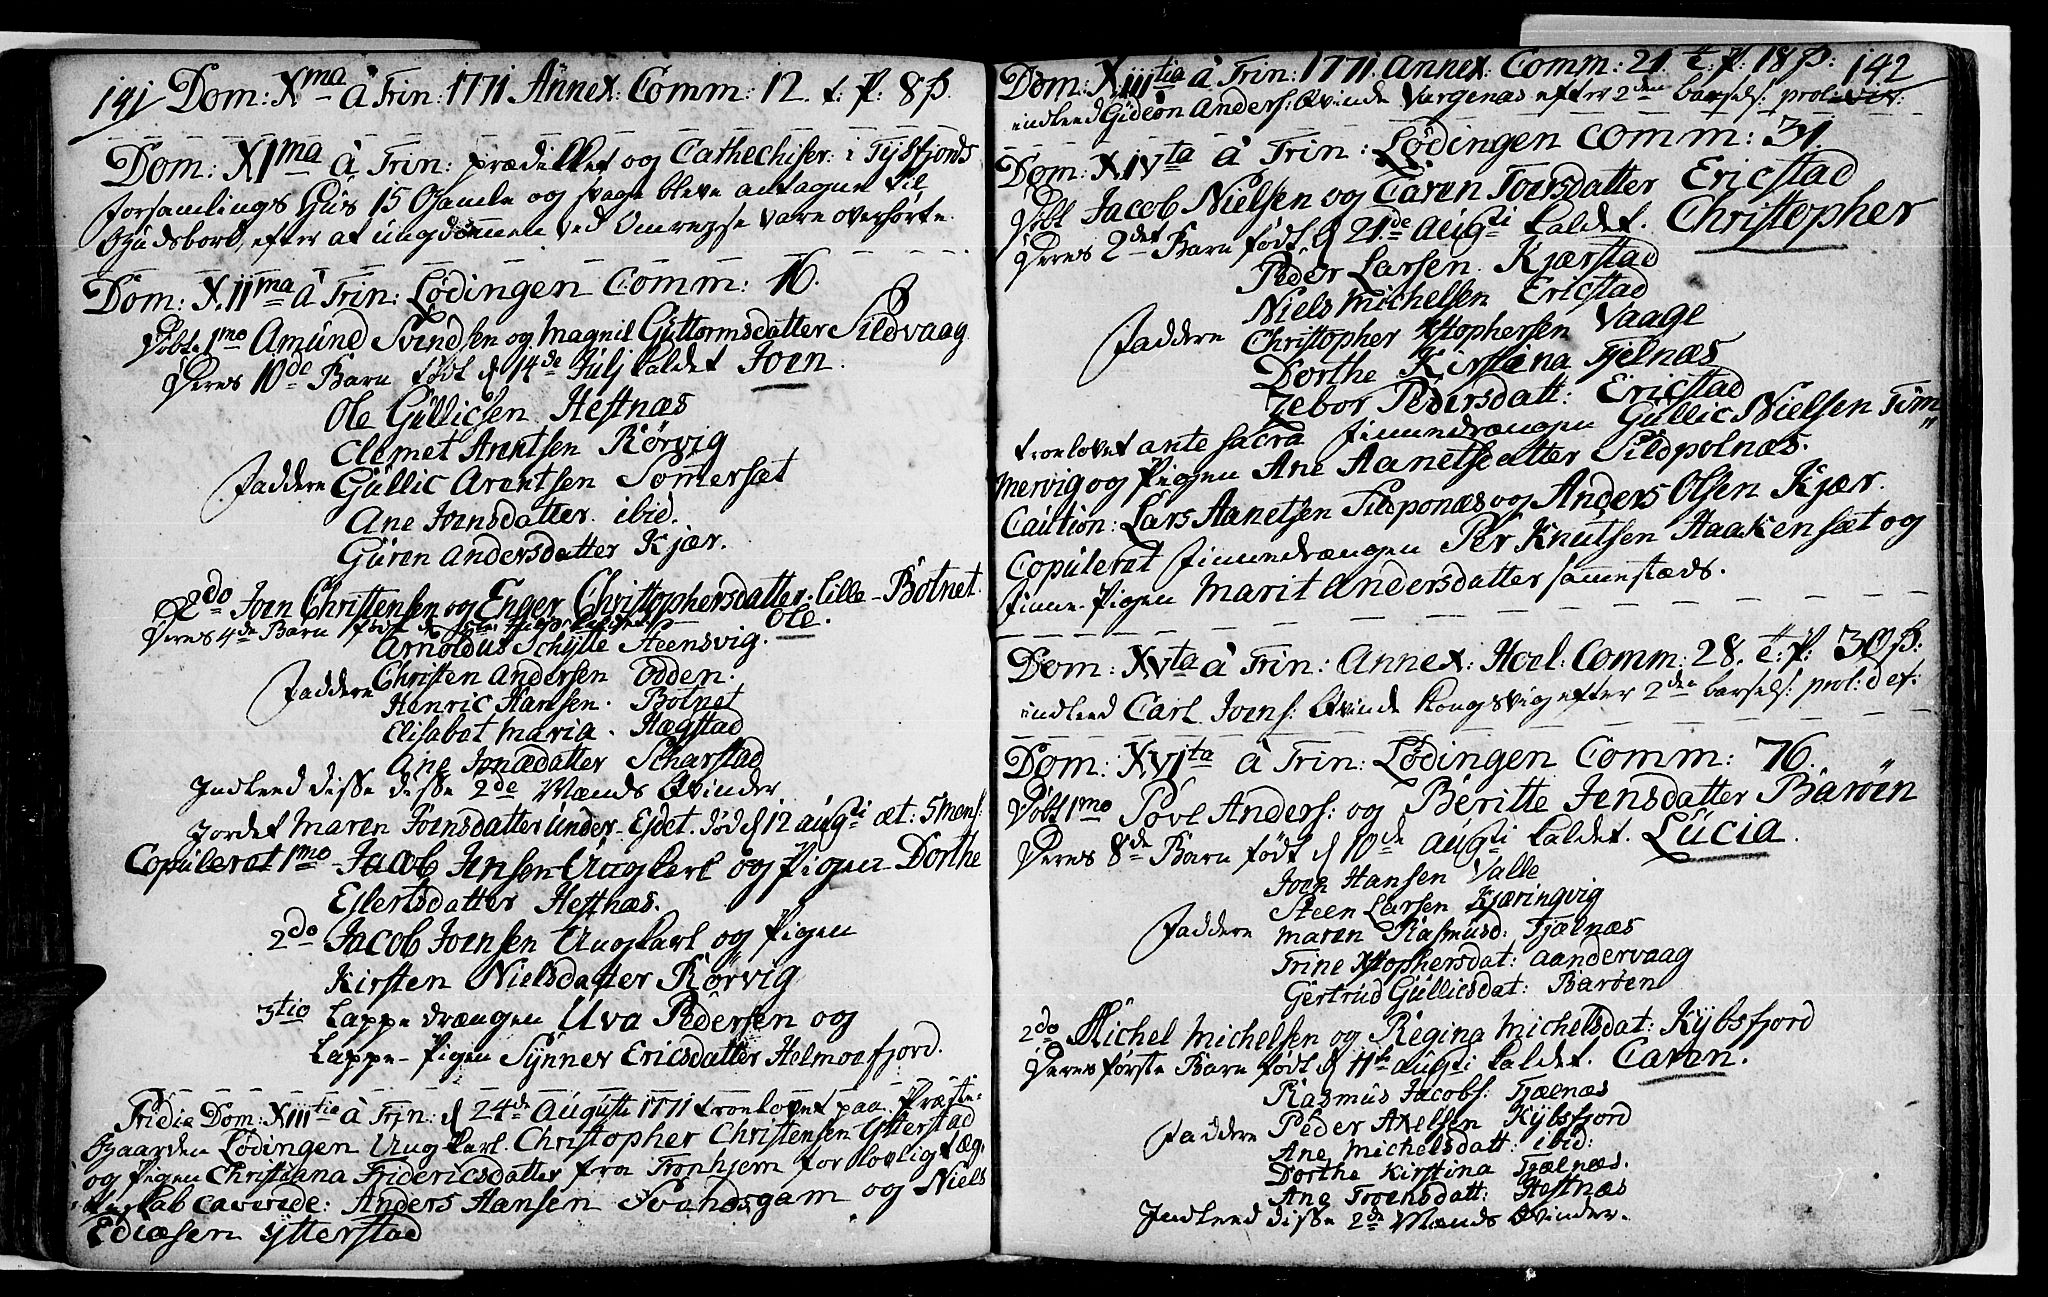 141 Dom: Xma â Trin: 1771 Annex: Comm: 12. t: p: 8 ß.
Dom: XIma â Trin: prædiket og Cathechiser: i Tysfjords
forsamlings Huus 15 Gamle og svage bleve antagne til
Gudsbord, efter at ungdommen ved Omreyse vare overhørte
Dom: XIIma â Trin: Lødingen Comm: 16.
Døbt 1mo Amund Svendsen og Magnil Guttormsdatter Sildvaag
Deres 10de Barn født d 14de Julj kaldet Joen.
Ole Gullicsen Hestnæs
Clemet Arentsen Rörvig
Faddere Gullic Arentsen Somerset
Ane Joensdatter ibid.
Guren Andersdatter Kjær.
2do Joen Christensen og Enger Christophersdatter lille-Botnet
Deres 4de Barn født d Ole.
Arnoldus Schytte Steensvig.
Faddere Christen Andersen Odden.
Henric Hansen. Botnet
Elisabet Maria. Hægstad
Ane Jonædatter Scharstad
Indleed disse disse 2de Mænds Qvinder
Jordet Maren Joensdatter under-Eidet. død d 12 augti æt: 5 mens:
Copulerat 1mo Jacob Jensen Ungkarl og Pigen Dorthe
Ejlertsdatter Hestnæs.
2do Jacob Joensen Ungkarl og Pigen
Kirsten Nielsdatter Rørvig
3tio Lappe drængen Uva Pedersen og
Lappe-Pigen Synnev Ericsdatter Helmoefjord.
Fridie Dom: XIIItia â Trin: d 24de Augusti 1771 troelovet paa Præste-
Gaarden Lødingen Ungkarl Christopher Christensen Ytterstad
og Pigen Christiana Fridericsdatter fra Tronhjem for lovlig fæg-
skab caverede: Anders Hansen Svendsgam og Niels
Ediæsen Ytterstad
Dom: XIIItia â Trin: 1771 Annex: Comm: 21 t: p: 18 ß: 142
indleed Gideon Anders: Qvinde Vargenæs efter 2den barsel: prol:
Dom: XIVta â Trin: Lødingen Comm: 31.
Døbt Jacob Nielsen og Caren Toersdatter Ericstad
Deres 2det Barn født d 21de Augti kaldet. Christopher
Peder Larsen Kjærstad
Niels Michelsen Ericstad
Faddere Christopher Xstophersen Vaage
Dorthe Kirstæna Fjelnæs
Zebor Pedersdatt: Ericstad
troelovet ante sacra Finnedrængen Gullic Nielsen Töm
mervig og Pigen Ane Aanetsdatter Sildpolnæs.
Caution: Lars Aanetsen Sildponæs og Anders Olsen Kjær.
Copulerat Finnedrængen Per Knutsen Haakenset og
Finne-Pigen Marit Andersdatter sammestæds.
Dom: XVta â Trin: Annex: Hoel: Comm: 28. t: p: 30 ß:
indleed Carl Joens: Qvinde Kongsvig efter 2den barsel: prol: def:
Dom: XVIta â Trin: Lødingen Comm: 76.
Døbt 1mo Povl Anders: og Beritte Jensdatter Barøen
Deres 8de Barn født d 10de Augti kaldet. Lucia.
Joen Hansen Valle
Steen Larsen Kjæringvig
Faddere Maren Rasmusd: Fjælnæs
Trine Xstophersdat: Aandervaag
Gertrud Gullicsdat: Barøen
2do Michel Michelsen og Regina Michelsdat: Kybsfjord
Deres første Barn født d 11te augti kaldet. Caren.
Rasmus Jacobs: Fjælnæs
Faddere Peder Axelsen Kybsfjord
Ane Michelsdatt: ibid:
Dorthe Kirstina Fjælnæs.
Ane Troensdatt: Hestnæs
Indleed disse 2de Mænds Qvinder.